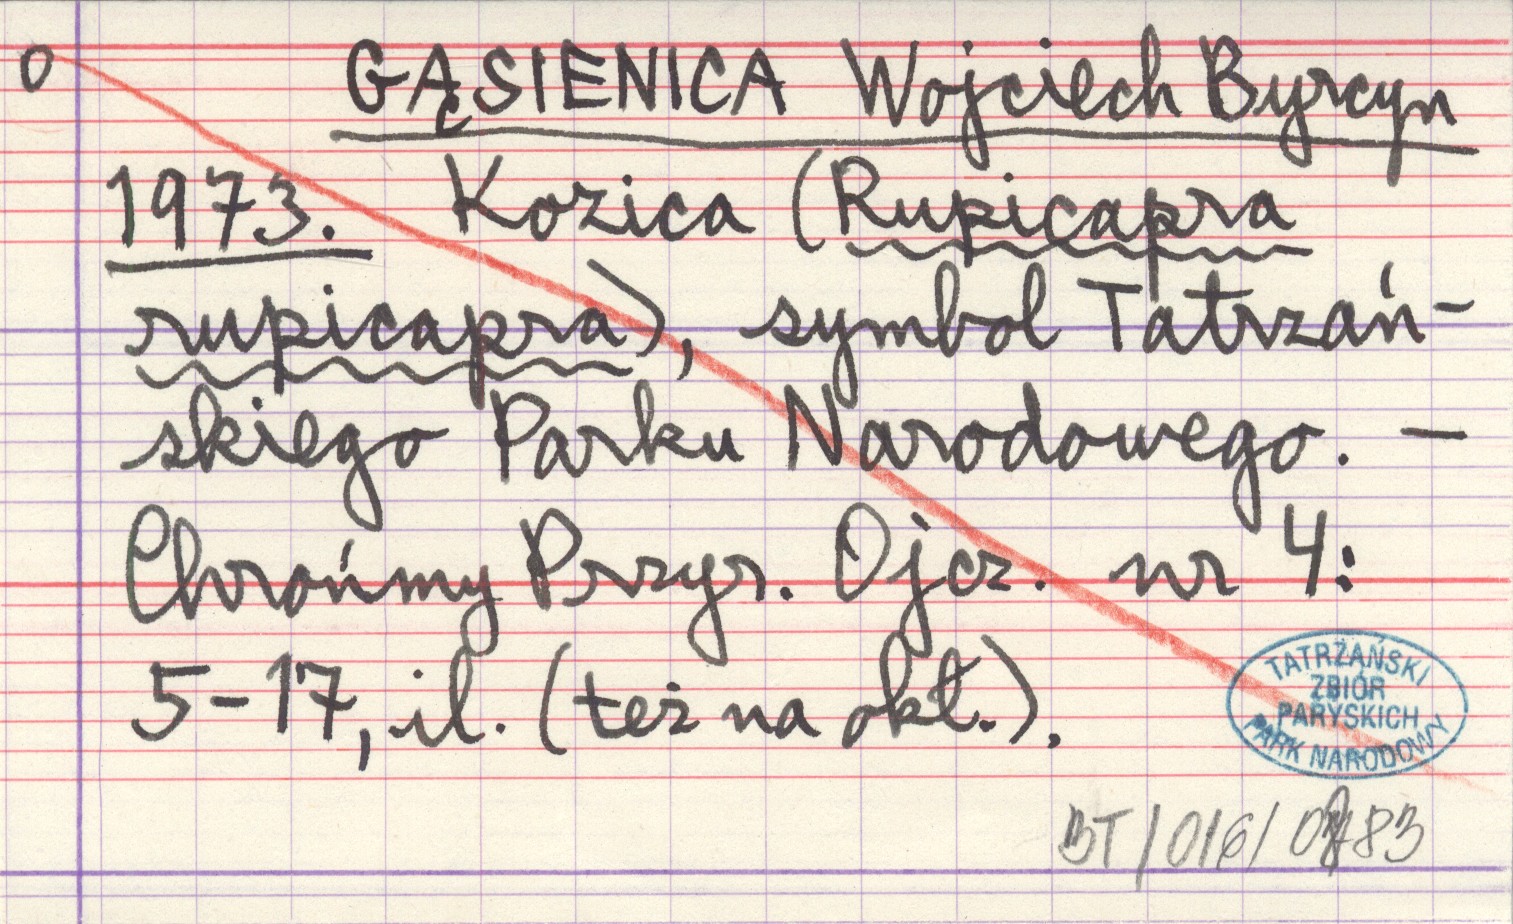 O
GĄSIENICA Wojciech Byrcyn
1973. Kozica (Rupicapra
rupicapra), symbol Tatrzań-
skiego Parku Narodowego. -
Chrońmy Przyr. Ojcz. nr 4:
5-17, il. (też na okł.).
TATRZAŃSKI
ZBIÓR
PARYSKICH
PARK NARODOWY
BT/016/